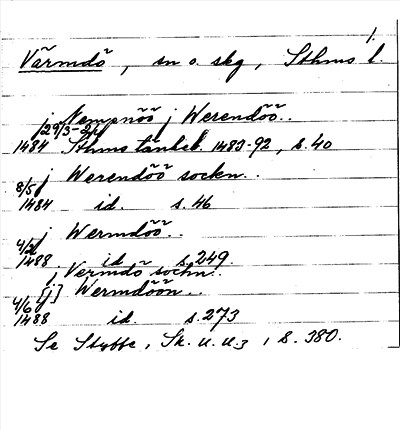 1.
Värmdö, sn o. skg, Sthms l.
j Nempnöö j Werendöö..
[29/3-2/4]
1484 Sthms tänkeb. 1483-92, s. 40
j Werendöö sockn..
8/5
1484 id. s. 46
j Wermdöö..
4/2
1488. id. s. 249
j Vermdö sochn..
[j] Wermdöön..
4/6
1488 id. s. 273
Se Styffe, Sk. u. u.3, s. 380.